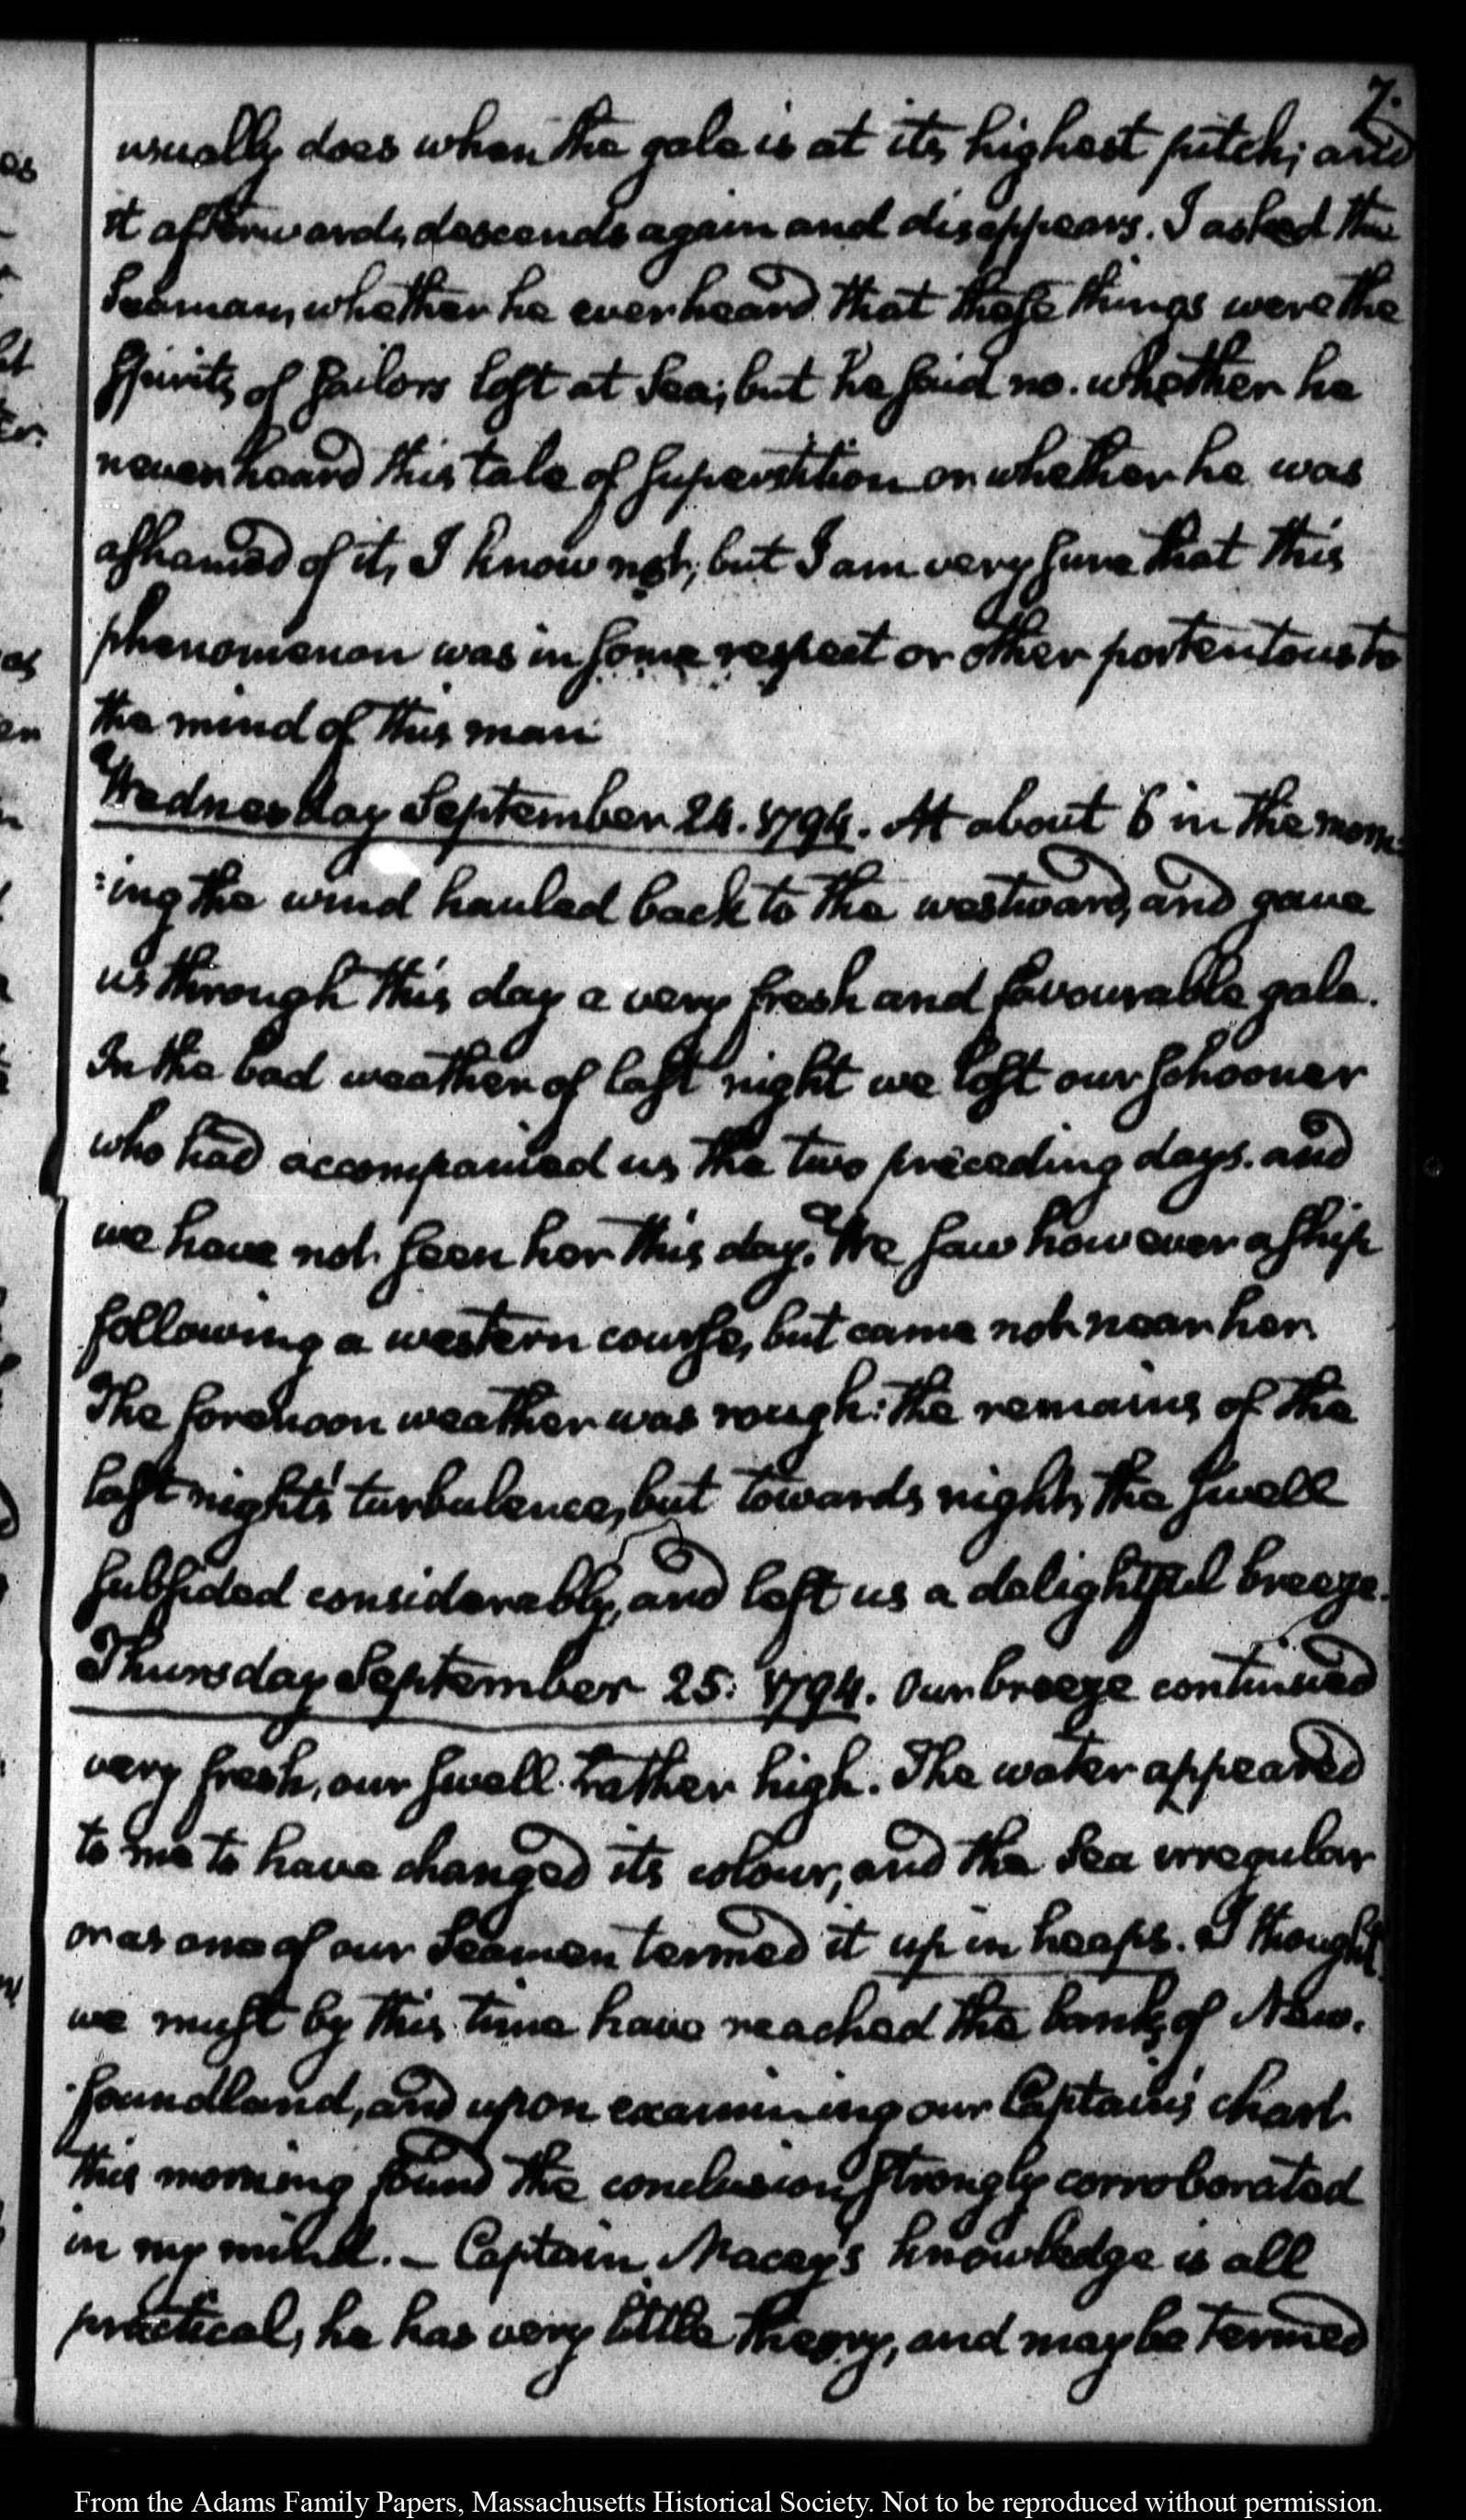 7.
usually does when the gale is at its highest pitch; and
it afterwards, descends again and disappears. I asked the
Seaman, whether he ever heard that these things were the
Spirits of Sailors lost at Sea; but he said no. whether he
never heard this tale of superstition or whether he was
ashamed of it, I know not; but I am very sure that this
phenomenon was in some respect or other portentous to
the mind of this man
Wednesday September 24. 1794. At about 6 in the morn-
:ing the wind hauled back to the westward, and gave
us through this day a very fresh and favourable gale.
In the bad weather of last night we lost our schooner
who had accompanied us the two preceding days. and
we have not seen her this day. We saw however a ship
following a western course, but came not near her.
The forenoon weather was rough: the remains of the
last night's turbulence, but towards night, the swell
subsided considerably, and left us a delightful breeze.
Thursday September 25. 1794. Our breeze continued
very fresh, our swell rather high. The water appeared
to me to have changed its colour, and the Sea irregular
or as one of our Seamen termed it up in heaps. I thought
we must by this time have reached the banks of New-
-foundland, and upon examining our Captain's chart
this morning found the conclusion strongly corroborated
in my mind. – Captain Macey's knowledge is all
practical, he has very little theory, and may be termed
From the Adams Family Papers, Massachusetts Historical Society. Not to be reproduced without permission.